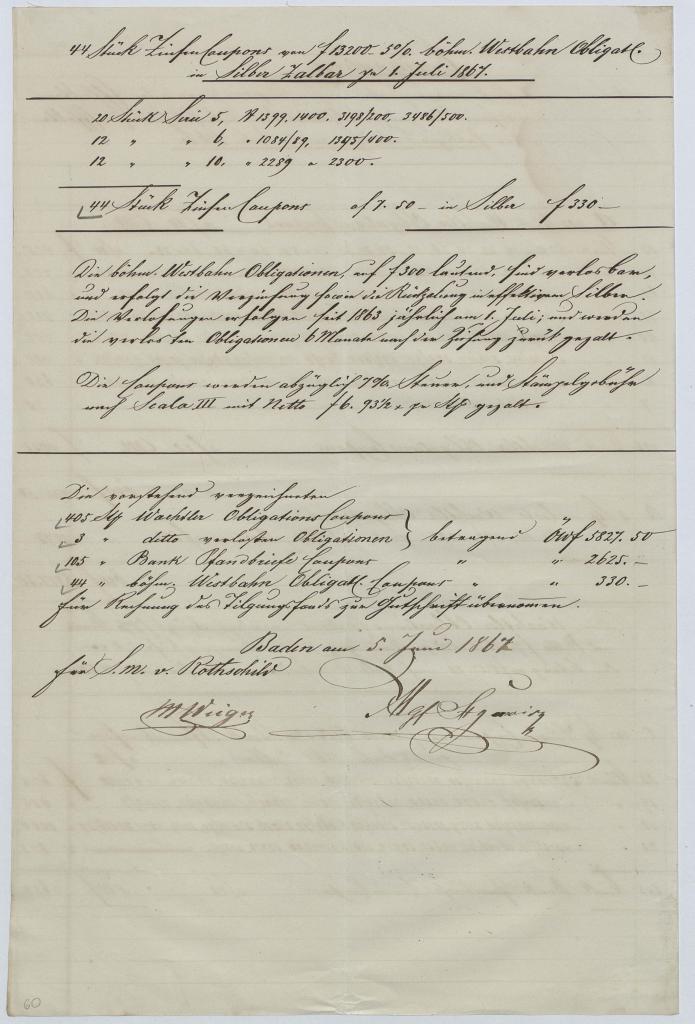 44 Stück ZinsenCoupons von f13200 5% böhm. Westbahn Obligat.
in Silber Zalbar pr 1. Juli 1867.
20 Stück Serie 5, № 1399. 1400. 3198/200, 3486/500.
12 " " 6, " 1084/89, 1395/400.
12 " " 10. " 2289 a 2300.
44 Stück Zinsen Coupons af 7. 50 – in Silber f 330 –
Die böhm. Westbahn Obligationen, auf f300 lautend, sind verlosbar,
und erfolgt die Verzinsung sowie die Rückzalung in effektivem Silber.
Die Verlosungen erfolgen seit 1863 jährlich am 1. Juli; und werden
die verlosten Obligationen 6 Monate nach der Ziehung zurück gezalt.
Die Coupons werden abzüglich 7% Steuer, und Stämpelgebühr
nach Scala III mit Netto f 6. 93½ x pr Stk gezalt.
Die vorstehend verzeichneten
405 Stk Waechtler ObligationsCoupons
3 " ditto verlosten Obligationen } betragend ÖWf 5827. 50
105 " Bank Pfandbriefe Coupons " " 2625. –
44 " böhm. Westbahn Obligat. Coupons " " 330. –
für Rechnung des Tilgungsfonds zur Gutschrift übernommen.
Baden am 5. Juni 1867
für S. M. v. Rothschild
60